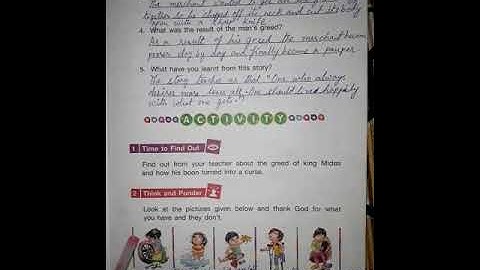 The merchant wanted to get
together to be chopped off his neck and cut its body
open with a sharp knife.
4. What was the result of the man's greed?
As a result of his greed the merchant became
poorer day by day and finally became a pauper
5. What have you learnt from this story?
The story teaches us that "One who always
desires more loses all. One should live happily
with what one gets."
ACTIVITY
1 Time to Find Out
Find out from your teacher about the greed of king Midas
and how his boon turned into a curse.
2 Think and Ponder
Look at the pictures given below and thank God for what
you have and they don't.